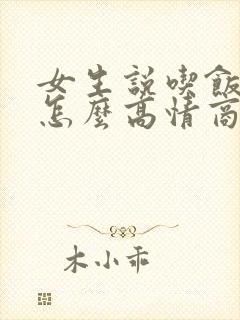 女生説喫飯
怎麼高情商
木小乖